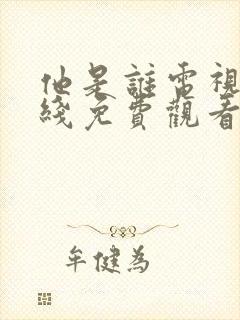 他是誰電視
綫免費觀看
牟健為